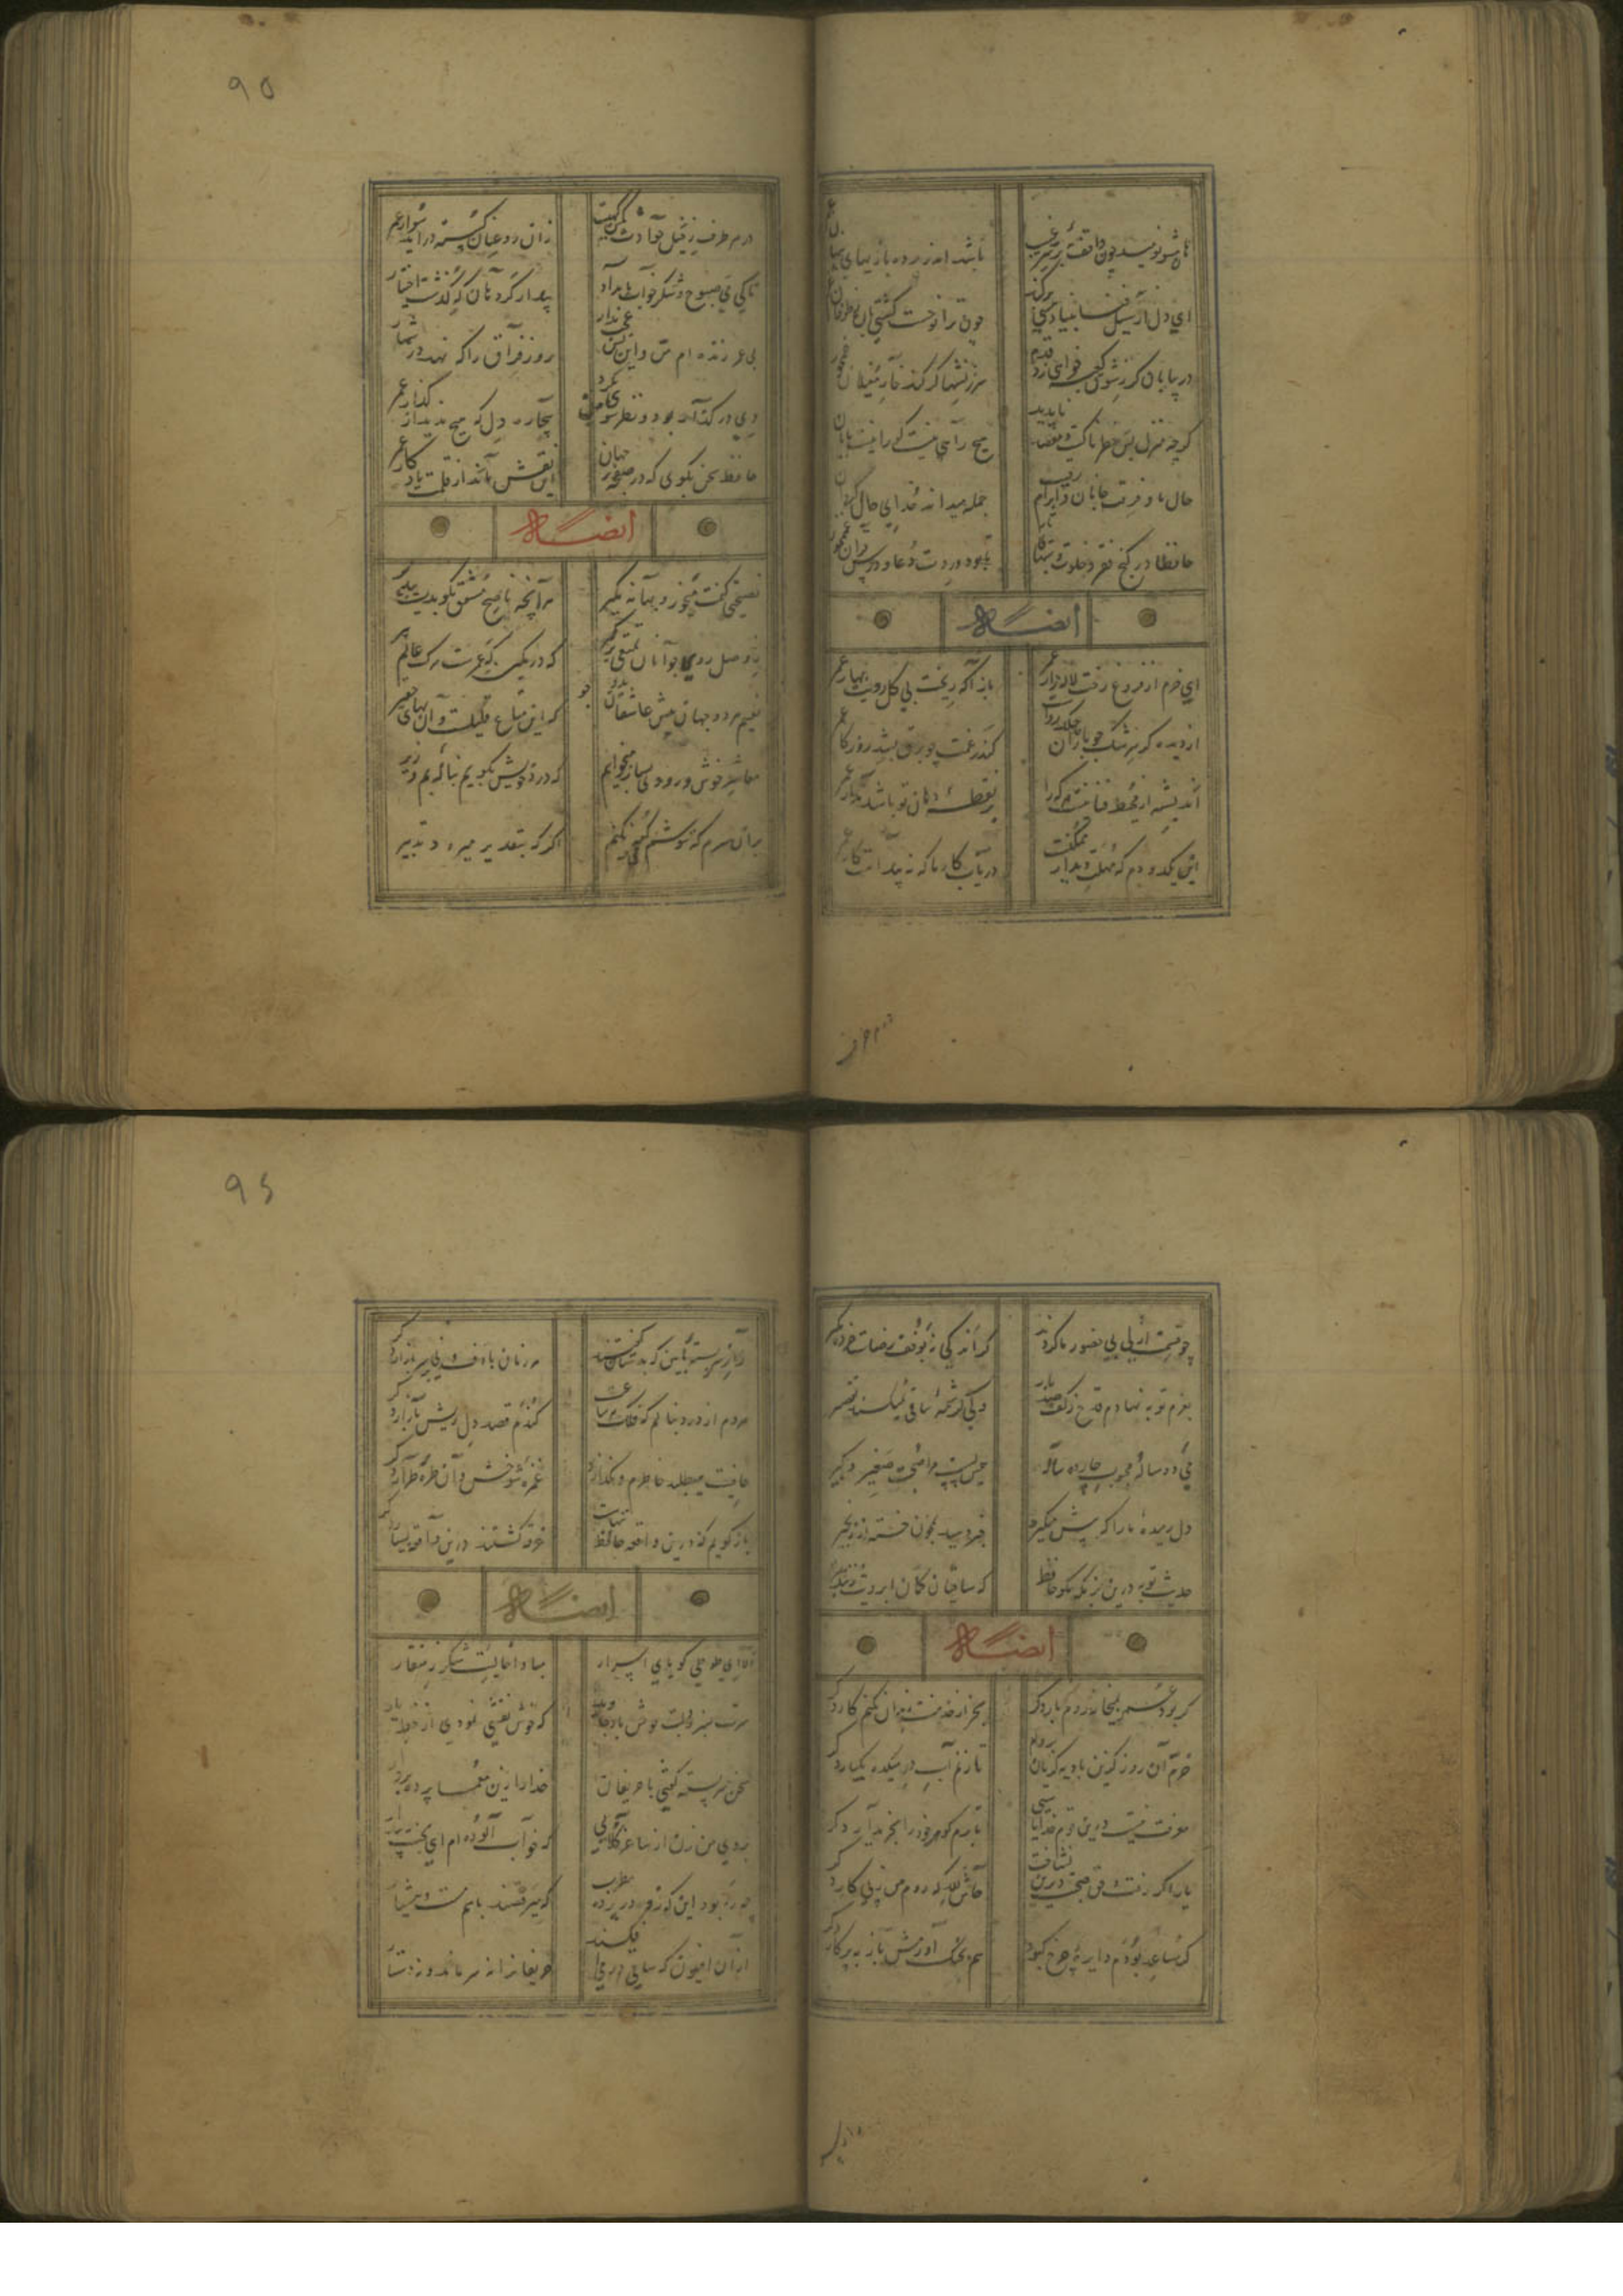 هان مشو نومید چون واقف نه ز سر غیب
باشد اندر پرده بازیهای پنهان
ای دل ار سیل فنا بنیاد هستی بر کند
چون ترا نوحست کشتی بان ز طوفان
در بیابان گر ز شوق کعبه خواهی زد قدم
سرزنشها گر کند خار مغیلان غم مخور
گرچه منزل بس خطرناکست و مقصد ناپدید
هیچ راهی نیست کو را نیست پایان
حال ما و فرقت جانان و ابرام رقیب
جمله میداند خدای حال گردان
حافظا در کنج فقر و خلوت شبهای تار
تا بود وردت دعا و درس قران غم مخور
ایضاله
ای خرم از فروغ رخت لاله زار عمر
باز آ که ریخت بی گل رویت بهار عمر
از دیده گر سرشک چو باران چکد رواست
کندر غمت چو برق بشد روزگار عمر
اندیشه از محیط فنا نیست هر که را
بر نقطه دهان تو باشد مدار عمر
این یکدو دم که مهلت دیدار ممکنست
دریاب کار ما که نه پیداست کار عمر
۹۵
در هر طرف ز خیل حوادث کمین گهیست
زان رو عنان گسسته دراند سوار عمر
تا کی می صبوح و شکر خواب بامداد
بیدار گرد هان که گذشت اختیار
بی عمر زنده ام من و این بس عجب مدار
روز فراق را که نهد در شمار
دی در گذار بود و نظر سوی من نکرد
بیچاره دل که هیچ ندید از گذار عمر
حافظ سخن بگوی که در صفحه جهان
این نقش ماند از قلمت یادگار عمر
ایضاله
نصیحتی کنمت مشنو و بهانه مگیر
هر آنچه ناصح مشفق بگویدت بپذیر
ز وصل روی جوانان تمتعی برگیر
که در کمین گه عمرست مکر عالم پیر
نعیم هر دو جهان پیش عاشقان بدو جو
که این متاع قلیلست و آن بهای حقیر
معاشر خوش و رودی بساز میخواهم
که درد خویش بگویم بناله بم و زیر
بر آن سرم که ننوشم می و گنه نکنم
اگر که تقدیر میرود تدبیر
چو قسمت ازلی بی حضور ما کردند
گر اندکی نه بوفق رضاست خرده مگیر
بعزم توبه نهادم قدح ز کف صد بار
ولی کرشمه ساقی نمیکند تقصیر
می دو ساله و محبوب چارده ساله
همین بسست مرا صحبت صغیر و کبیر
دل رمیده ما را که پیش میگیرد
خبر دهید بمجنون خسته از زنجیر
حدیث توبه درین بزمگه مگو حافظ
که ساقیان کمان ابرویت زنند بتیر
ایضاله
گر بود عمر بمیخانه روم بار دگر
بجز از خدمت رندان نکنم کار دگر
خرم آن روز کزین بادیه گریان بروم
تا زنم آب در میکده یکبار دگر
معرفت نیست درین قوم خدایا سببی
تا برم گوهر خود را بخریدار دگر
یار اگر رفت و حق صحبت دیرین نشناخت
حاش لله که روم من ز پی کار دگر
گر مساعد بودم دایره چرخ کبود
هم بچنگ آورمش باز به پرکار دگر
۹۶
راز سربسته ما بین که بدستان گفتند
هر زمان با دف و نی بر سر بازار دگر
هردم از درد بنالم که فلک هر ساعت
کندم قصد دل ریش بآزار دگر
عافیت میطلبد خاطرم و بگذارند
غمزه شوخش و آن طره طرار دگر
باز گویم نه درین واقعه حافظ تنهاست
غرقه گشتند درین واقعه بسیار دگر
ایضاله
الا ای طوطی گویای اسرار
مبادا خالیت شکر ز منقار
سرت سبز و دلت خوش باد جاوید
که خوش نقشی نمودی از خط یار
سخن سربسته گفتی با حریفان
خدارا زین معما پرده بردار
بروی من زن از ساغر گلابی
که خواب آلوده ام ای بخت بیدار
چه ره بود این که زد در پرده مطرب
که میرقصند باهم مست و هشیار
از آن افیون که ساقی در می افکند
حریفانرا نه سر ماند و نه دستار